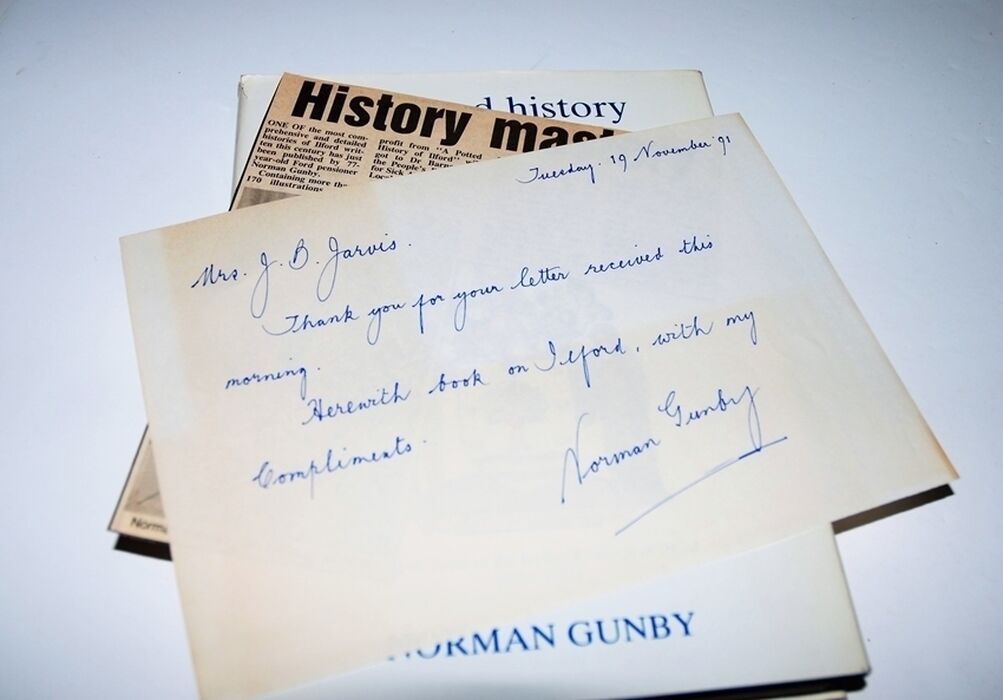 d history
History
ONE OF the most com-
prehensive and detailed
histories of Ilford writ-
ten this century has just
been published by 77-
year-old Ford pensioner
Norman Gunby.
Containing more
170 illustrations
profit from "A Potted
History of Ilford"
got to Dr
the People's
for Sick
Tuesday. 19 November '91
Mrs. J. B. Jarvis.
Thank you for your letter received this
morning.
Herewith book on Ilford, with my
Compliments.
Norman Gunby
NORMAN GUNBY